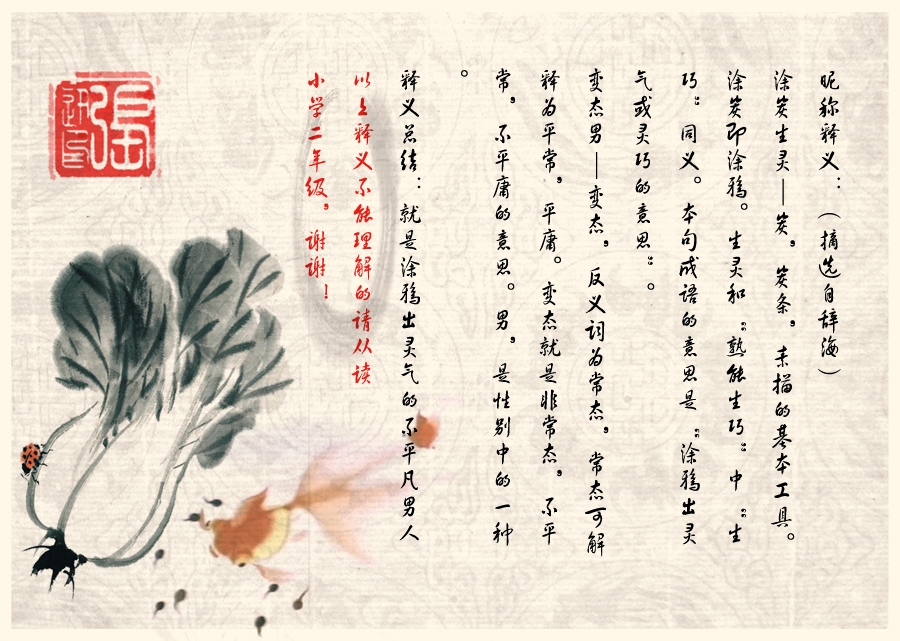 昵称释义：（摘选自辞海）
涂炭生灵—炭，炭条，素描的基本工具。
涂炭即涂鸦。生灵和“熟能生巧”中“生
巧”同义。本句成语的意思是“涂鸦出灵
气或灵巧的意思”。
变态男—变态，反义词为常态，常态可解
释为平常，平庸。变态就是非常态，不平
常，不平庸的意思。男，是性别中的一种
。
释义总结：就是涂鸦出灵气的不平凡男人
以上释义不能理解的请从读
小学二年级，谢谢！